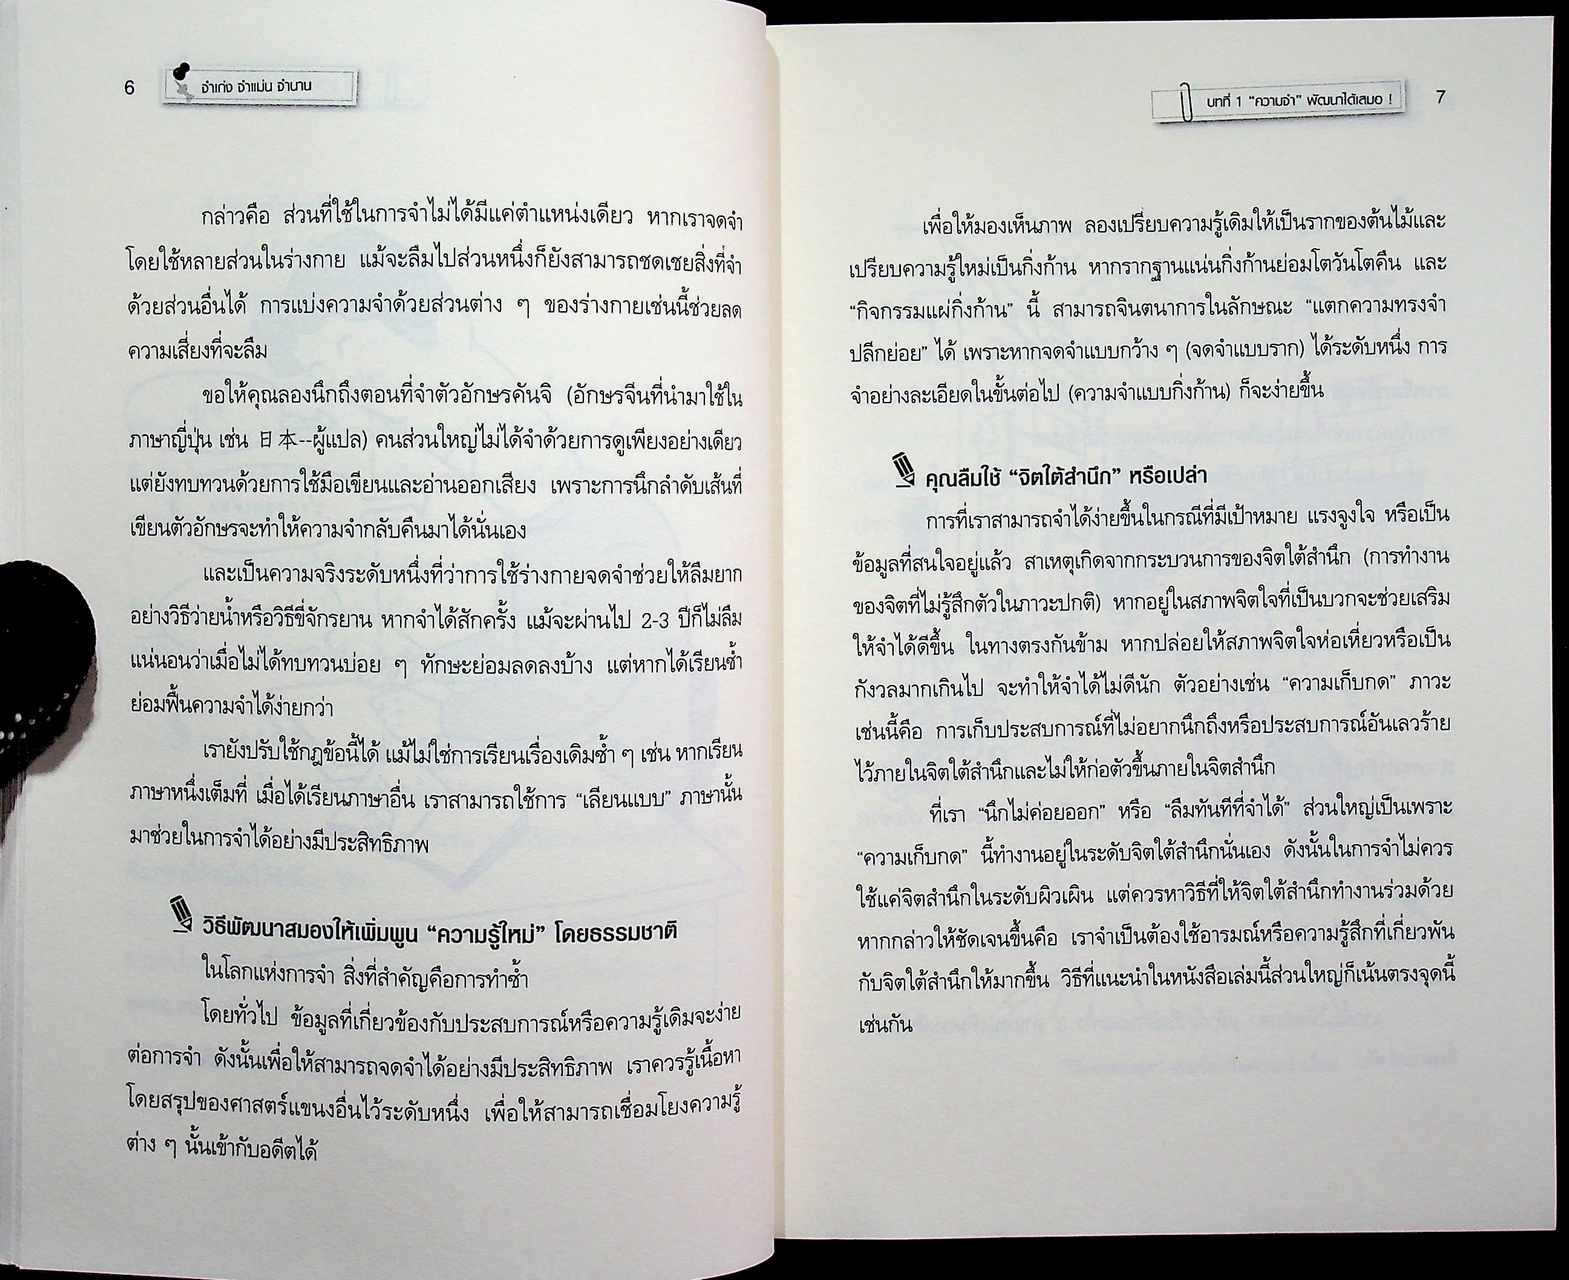 6
จำเก่ง จำแม่น จำนาน
กล่าวคือ ส่วนที่ใช้ในการจำไม่ได้มีแค่ตำแหน่งเดียว หากเราจดจำ
โดยใช้หลายส่วนในร่างกาย แม้จะลืมไปส่วนหนึ่งก็ยังสามารถชดเชยสิ่งที่จำ
ด้วยส่วนอื่นได้ การแบ่งความจำด้วยส่วนต่าง ๆ ของร่างกายเช่นนี้ช่วยลด
ความเสี่ยงที่จะลืม
ขอให้คุณลองนึกถึงตอนที่จำตัวอักษรคันจิ (อักษรจีนที่นำมาใช้ใน
ภาษาญี่ปุ่น เช่น 日本--ผู้แปล) คนส่วนใหญ่ไม่ได้จำด้วยการดูเพียงอย่างเดียว
แต่ยังทบทวนด้วยการใช้มือเขียนและอ่านออกเสียง เพราะการนึกลำดับเส้นที่
เขียนตัวอักษรจะทำให้ความจำกลับคืนมาได้นั่นเอง
และเป็นความจริงระดับหนึ่งที่ว่าการใช้ร่างกายจดจำช่วยให้ลืมยาก
อย่างวิธีว่ายน้ำหรือวิธีขี่จักรยาน หากจำได้สักครั้ง แม้จะผ่านไป 2-3 ปีก็ไม่ลืม
แน่นอนว่าเมื่อไม่ได้ทบทวนบ่อย ๆ ทักษะย่อมลดลงบ้าง แต่หากได้เรียนซ้ำ
ย่อมฟื้นความจำได้ง่ายกว่า
เรายังปรับใช้กฎข้อนี้ได้ แม้ไม่ใช่การเรียนเรื่องเดิมซ้ำ ๆ เช่น หากเรียน
ภาษาหนึ่งเต็มที่ เมื่อได้เรียนภาษาอื่น เราสามารถใช้การ “เลียนแบบ” ภาษานั้น
มาช่วยในการจำได้อย่างมีประสิทธิภาพ
วิธีพัฒนาสมองให้เพิ่มพูน “ความรู้ใหม่” โดยธรรมชาติ
ในโลกแห่งการจำ สิ่งที่สำคัญคือการทำซ้ำ
โดยทั่วไป ข้อมูลที่เกี่ยวข้องกับประสบการณ์หรือความรู้เดิมจะง่าย
ต่อการจำ ดังนั้นเพื่อให้สามารถจดจำได้อย่างมีประสิทธิภาพ เราควรรู้เนื้อหา
โดยสรุปของศาสตร์แขนงอื่นไว้ระดับหนึ่ง เพื่อให้สามารถเชื่อมโยงความรู้
ต่าง ๆ นั้นเข้ากับอดีตได้
บทที่ 1 “ความจำ” พัฒนาได้เสมอ !
7
เพื่อให้มองเห็นภาพ ลองเปรียบความรู้เดิมให้เป็นรากของต้นไม้และ
เปรียบความรู้ใหม่เป็นกิ่งก้าน หากรากฐานแน่นกิ่งก้านย่อมโตวันโตคืน และ
“กิจกรรมแผ่กิ่งก้าน” นี้ สามารถจินตนาการในลักษณะ “แตกความทรงจำ
ปลีกย่อย” ได้ เพราะหากจดจำแบบกว้าง ๆ (จดจำแบบราก) ได้ระดับหนึ่ง การ
จำอย่างละเอียดในขั้นต่อไป (ความจำแบบกิ่งก้าน) ก็จะง่ายขึ้น
คุณลืมใช้ “จิตใต้สำนึก” หรือเปล่า
การที่เราสามารถจำได้ง่ายขึ้นในกรณีที่มีเป้าหมาย แรงจูงใจ หรือเป็น
ข้อมูลที่สนใจอยู่แล้ว สาเหตุเกิดจากกระบวนการของจิตใต้สำนึก (การทำงาน
ของจิตที่ไม่รู้สึกตัวในภาวะปกติ) หากอยู่ในสภาพจิตใจที่เป็นบวกจะช่วยเสริม
ให้จำได้ดีขึ้น ในทางตรงกันข้าม หากปล่อยให้สภาพจิตใจห่อเหี่ยวหรือเป็น
กังวลมากเกินไป จะทำให้จำได้ไม่ดีนัก ตัวอย่างเช่น “ความเก็บกด” ภาวะ
เช่นนี้คือ การเก็บประสบการณ์ที่ไม่อยากนึกถึงหรือประสบการณ์อันเลวร้าย
ไว้ภายในจิตใต้สำนึกและไม่ให้ก่อตัวขึ้นภายในจิตสำนึก
ที่เรา “นึกไม่ค่อยออก” หรือ “ลืมทันทีที่จำได้” ส่วนใหญ่เป็นเพราะ
“ความเก็บกด” นี้ทำงานอยู่ในระดับจิตใต้สำนึกนั่นเอง ดังนั้นในการจำไม่ควร
ใช้แค่จิตสำนึกในระดับผิวเผิน แต่ควรหาวิธีที่ให้จิตใต้สำนึกทำงานร่วมด้วย
หากกล่าวให้ชัดเจนขึ้นคือ เราจำเป็นต้องใช้อารมณ์หรือความรู้สึกที่เกี่ยวพัน
กับจิตใต้สำนึกให้มากขึ้น วิธีที่แนะนำในหนังสือเล่มนี้ส่วนใหญ่ก็เน้นตรงจุดนี้
เช่นกัน